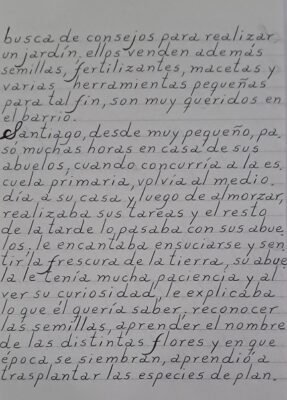 busca de consejos para realizar
un jardín. ellos venden además
semillas, fertilizantes, macetas y
varias herramientas pequeñas
para tal fin, son muy queridos en
el barrio.
Santiago, desde muy pequeño, pa.
só muchas horas en casa de sus
abuelos, cuando concurría a la es.
cuela primaria, volvía al medio.
día a su casa y luego de almorzar,
realizaba sus tareas y el resto
de la tarde lo pasaba con sus abue
los. le encantaba ensuciarse y sen
tir la frescura de la tierra, su abue
la le tenía mucha paciencia y al
ver su curiosidad, le explicaba
lo que él quería saber, reconocer
las semillas, aprender el nombre
de las distintas flores y en que
época se siembran, aprendió a
trasplantar las especies de plan.